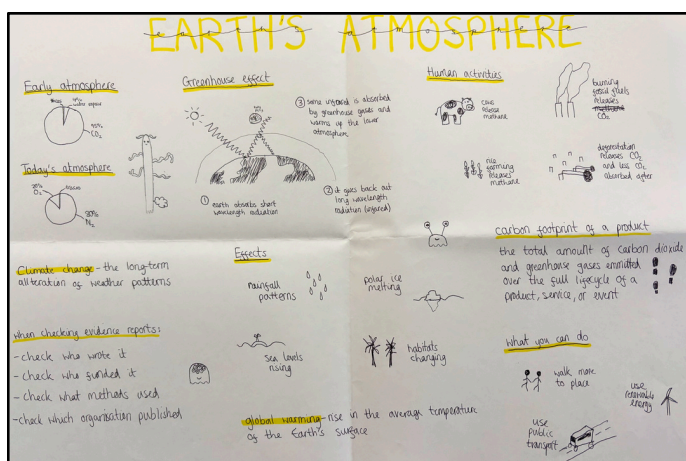 EARTH'S ATMOSPHERE
Early atmosphere
water vapour
95%
CO₂
Today's atmosphere
20%
O₂
80%
N₂
Greenhouse effect
① earth absorbs short
wavelength radiation
② it goes back out
long wavelength
radiation (infrared)
③ some infrared is absorbed
by greenhouse gases and
warms up the lower
atmosphere
Human activities
cows
release
methane
burning
fossil fuels
releases
CO₂
rice
farming
releases
methane
releases CO₂
and less CO₂
absorbed after
Climate change - the long-term
alteration of weather patterns
when checking evidence reports:
- check who wrote it
- check who funded it
- check what methods used
- check which organisation published
Effects
rainfall
patterns
polar ice
melting
sea levels
rising
habitats
changing
global warming - rise in the average temperature
of the Earth's surface
carbon footprint of a product
the total amount of carbon dioxide
and greenhouse gases emmitted
over the full lifecycle of a
product, service, or event
what you can do
walk more
to place
use
renewable
energy
use
public
transport